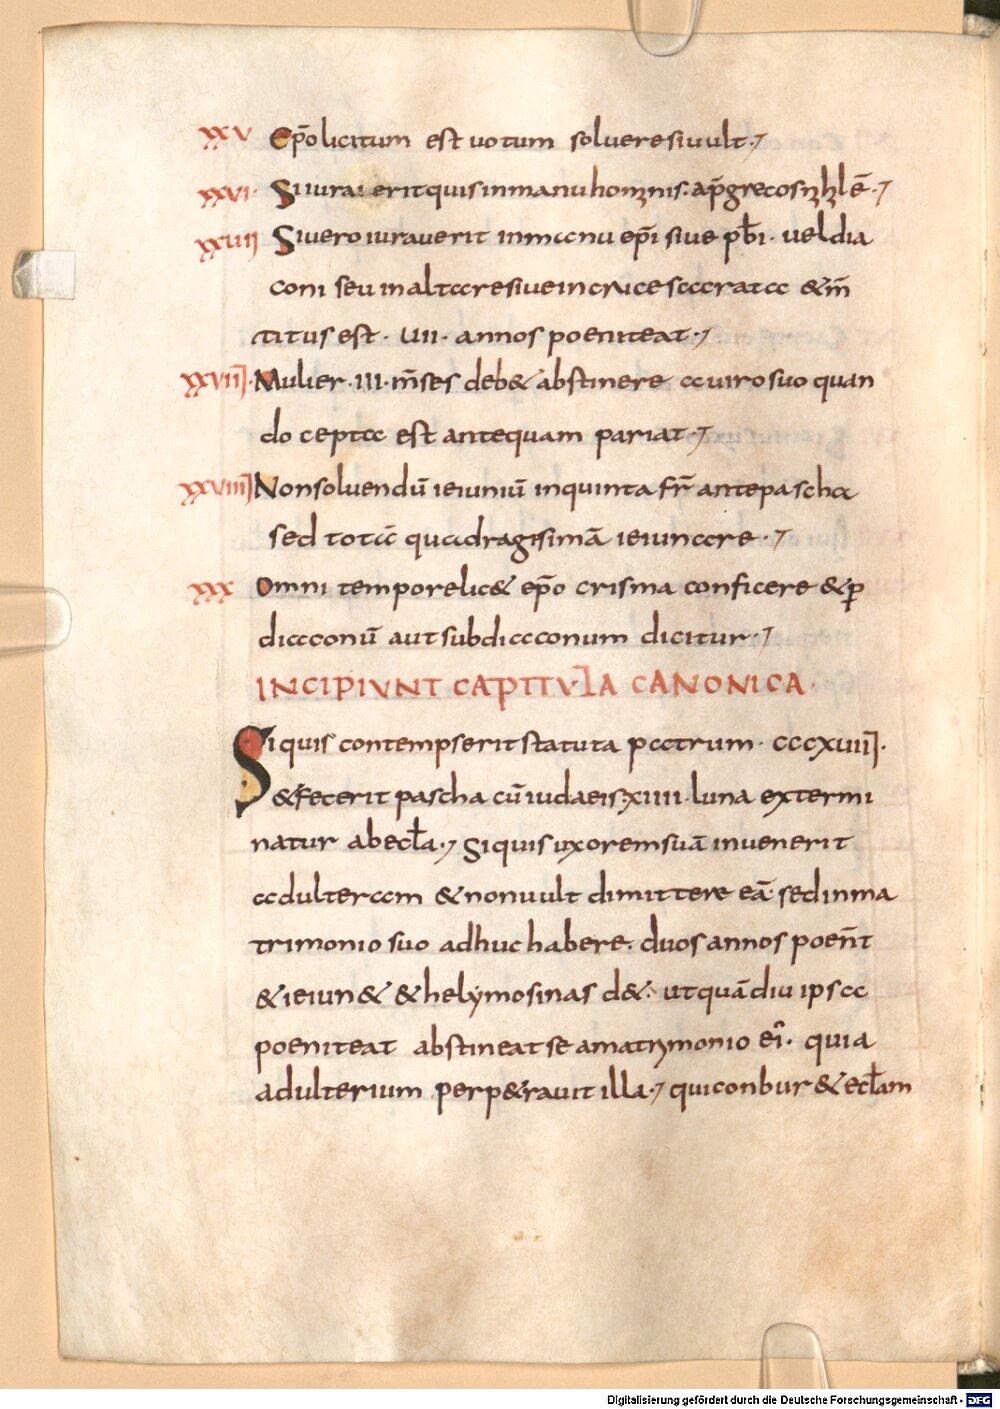 XXV Ep̄o licitum est uotum soluere si uult·
XXVI· Si iurauerit quis in manu hominis· ap̄ grecos nihil ē·
XXVII Si uero iurauerit in manu ep̄i siue pb̄i· uel dia
coni seu in altare siue in cruce sacrata & m̄
titus est· VII· annos poeniteat·
XXVIII· Mulier ·III· m̄ses deb& abstinere a uiro suo quan
do cepta est antequam pariat·
XXVIIII Non soluendū ieiuniū in quinta fr̄ ante pascha
sed totā quadragesimā ieiunare·
XXX Omni tempore lic& ep̄o crisma conficere & ꝑ
diaconū aut subdiaconum dicitur·
INCIPIUNT CAPITULA CANONICA·
Si quis contempserit statuta patrum· CCCXVIII·
& fecerit pascha cū iudaeis· XIIII· luna extermi
natur ab eccl̄a· Si quis uxorem suā inuenerit
adulteram & non uult dimittere eā sed in ma
trimonio suo adhuc habere· duos annos poen̄t
& ieiun& & helymosinas d&· ut quādiu ipsa
poeniteat abstineat se a matrymonio ei· quia
adulterium perp&rauit illa· qui conbur& eccl̄am
Digitalisierung gefördert durch die Deutsche Forschungsgemeinschaft - DFG